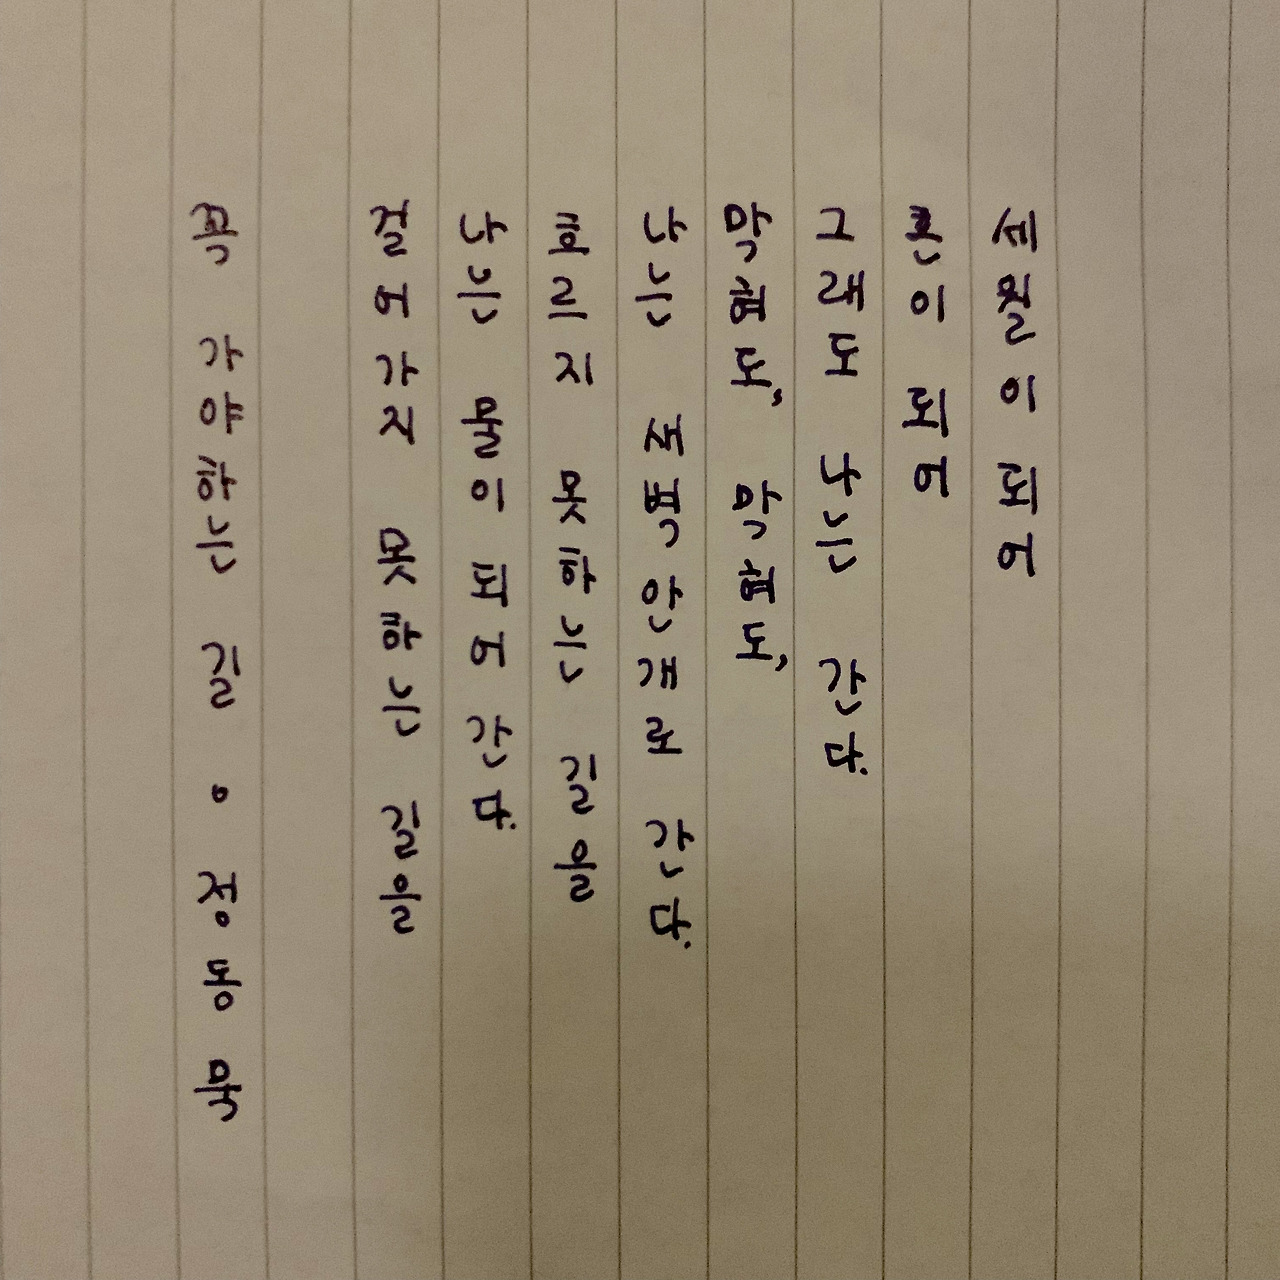 꼭 가야하는 길 ∘ 정동묵
걸어가지 못하는 길을
나는 물이 되어 간다.
흐르지 못하는 길을
나는 새벽안개로 간다.
막혀도, 막혀도,
그래도 나는 간다.
혼이 되어
세월이 되어